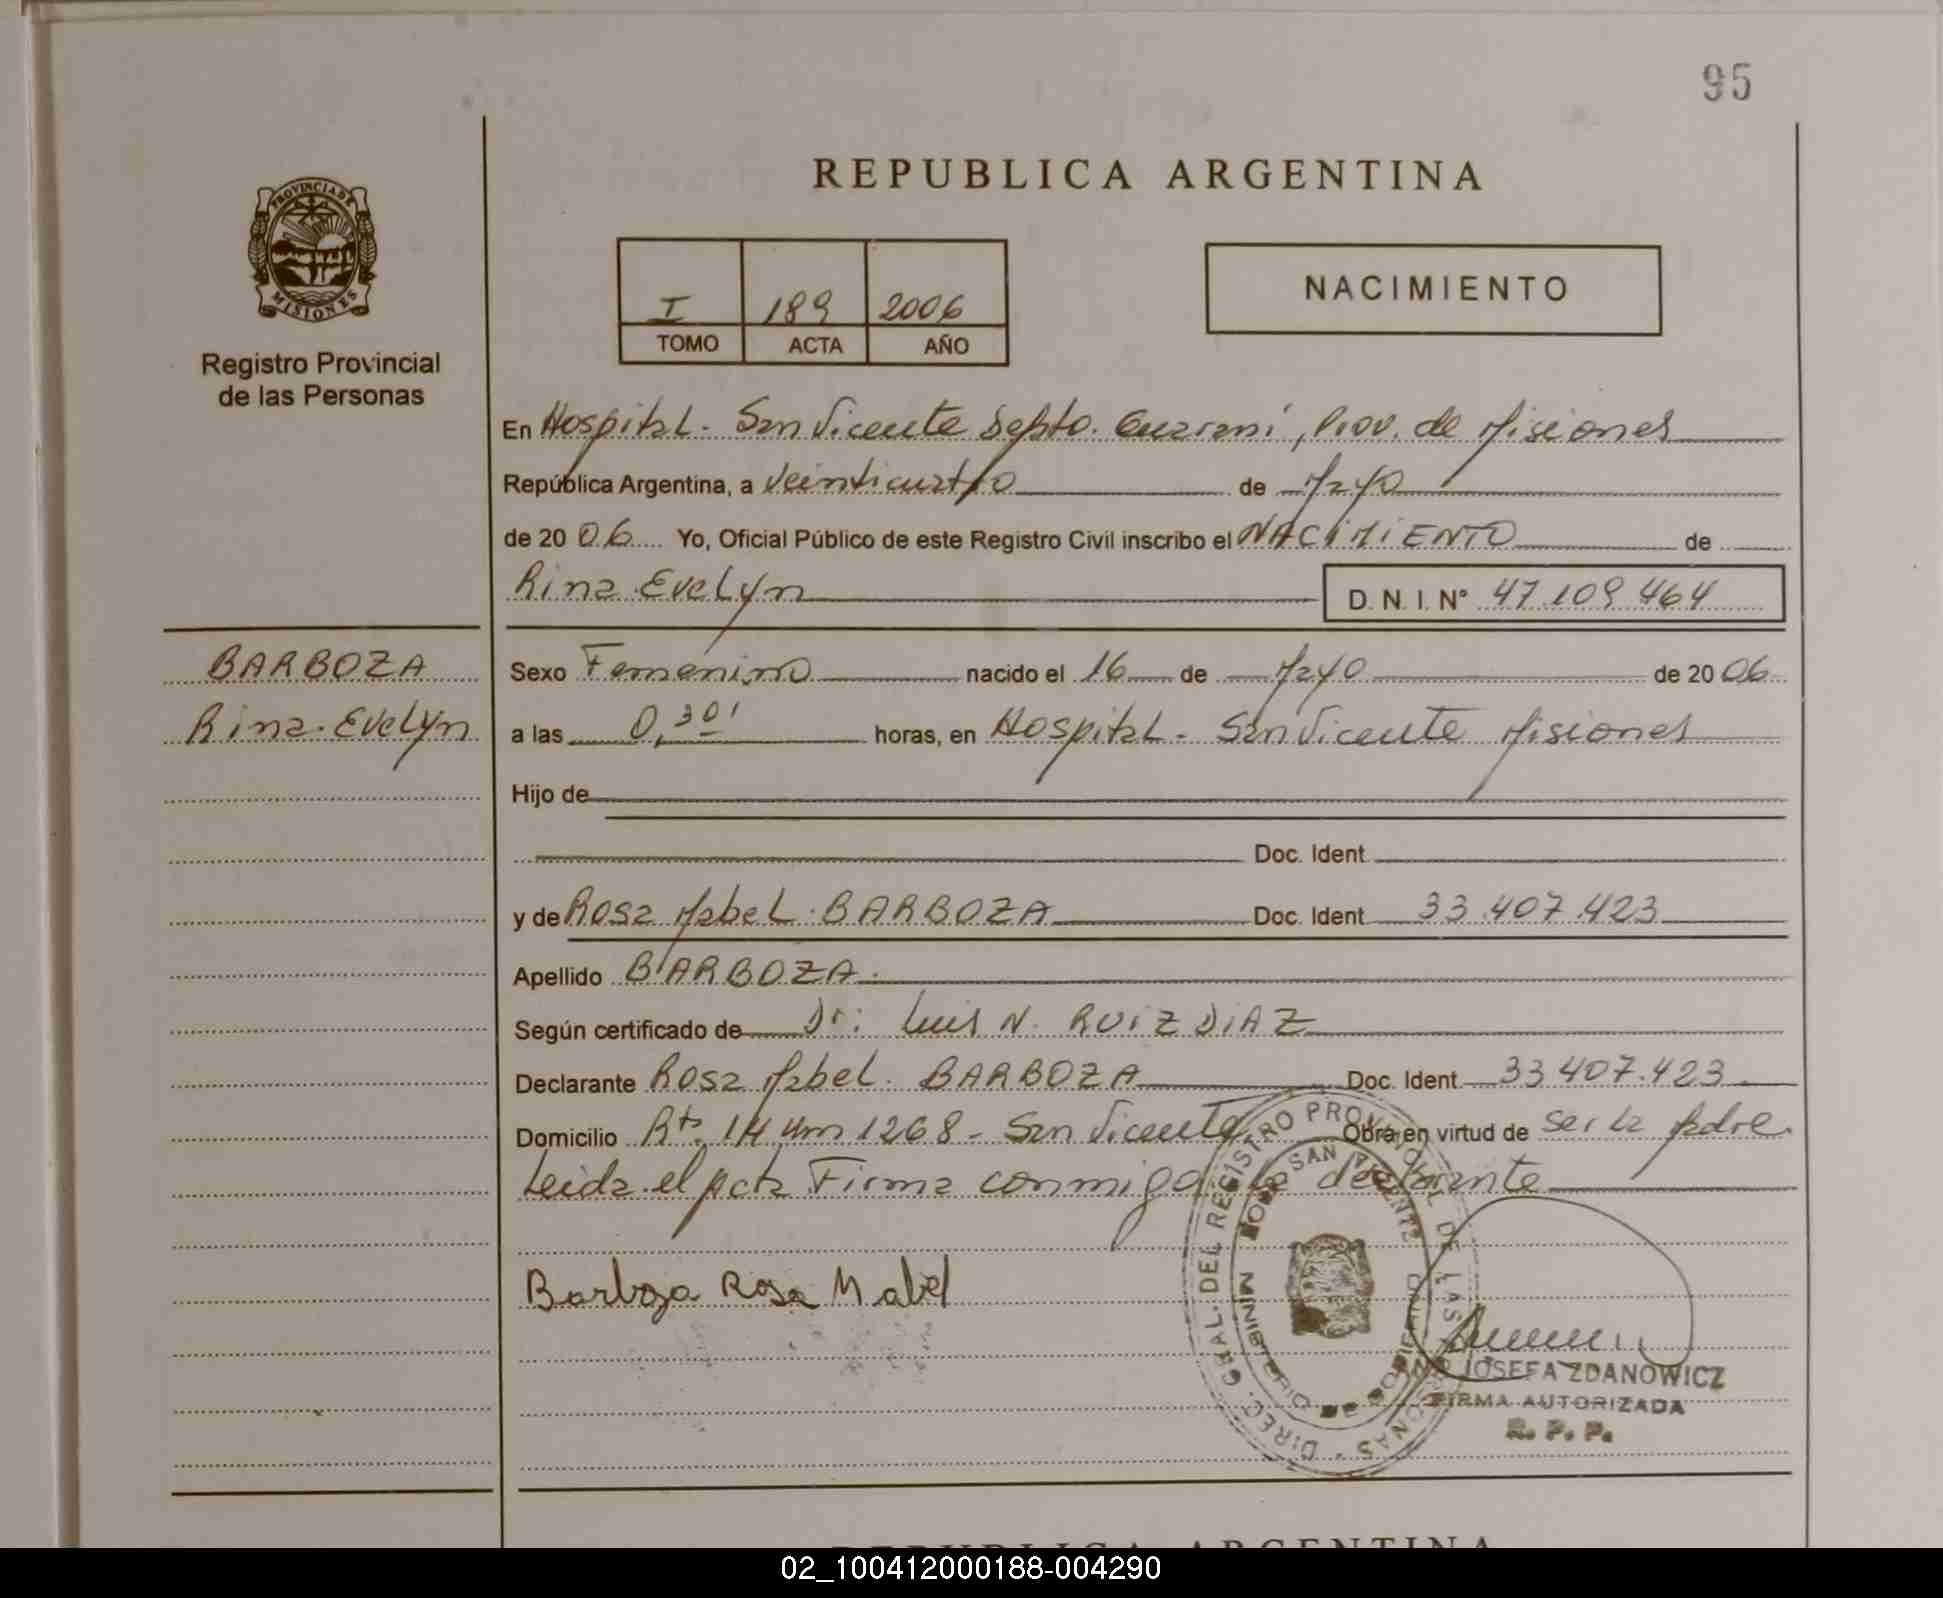 95
REPUBLICA ARGENTINA
PROVINCIA DE
MISIONES
Registro Provincial
de las Personas
I 189 2006
TOMO ACTA AÑO
NACIMIENTO
En Hospital - San Vicente Depto. Guaraní, Prov. de Misiones
República Argentina, a Veinticuatro de Mayo
de 20 06 Yo, Oficial Público de este Registro Civil inscribo el NACIMIENTO de
Rina Evelyn D. N. I. N° 47.109.464
BARBOZA
Rina Evelyn
Sexo Femenino nacido el 16 de Mayo de 20 06
a las 0,30' horas, en Hospital - San Vicente Misiones
Hijo de
Doc. Ident.
y de Rosa Mabel BARBOZA Doc. Ident. 33.407.423
Apellido BARBOZA.
Según certificado de Dr: Luis N. RUIZ DIAZ
Declarante Rosa Mabel BARBOZA Doc. Ident. 33.407.423
Domicilio Rta. 14 Km 1268 - San Vicente. Obra en virtud de ser la Madre.
Leida el Acta Firma conmigo la declarante
Barboza Rosa Mabel
DIREC. GRAL. DEL REGISTRO PROVINCIAL DE LAS PERSONAS
SAN VICENTE
MINISTERIO DE GOBIERNO
JOSEFA ZDANOWICZ
FIRMA AUTORIZADA
R. P. P.
REPUBLICA ARGENTINA
02_100412000188-004290